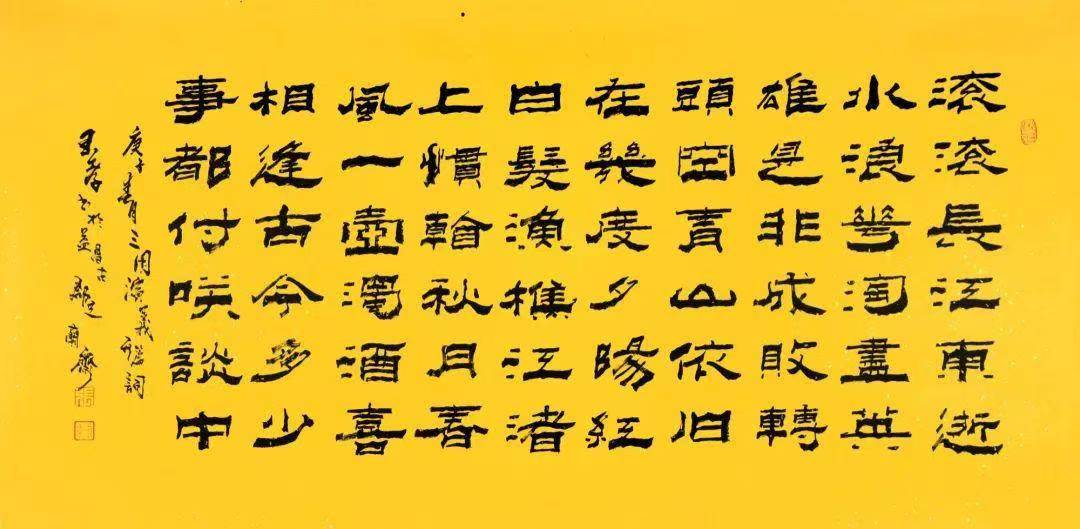 滚滚長江東逝
水浪花淘盡英
雄是非成敗轉
頭空青山依旧
在幾度夕陽紅
白髮漁樵江渚
上慣看秋月春
風一壺濁酒喜
相逢古今多少
事都付咲談中
庚子春月三国演義詞
书於益昌古齋